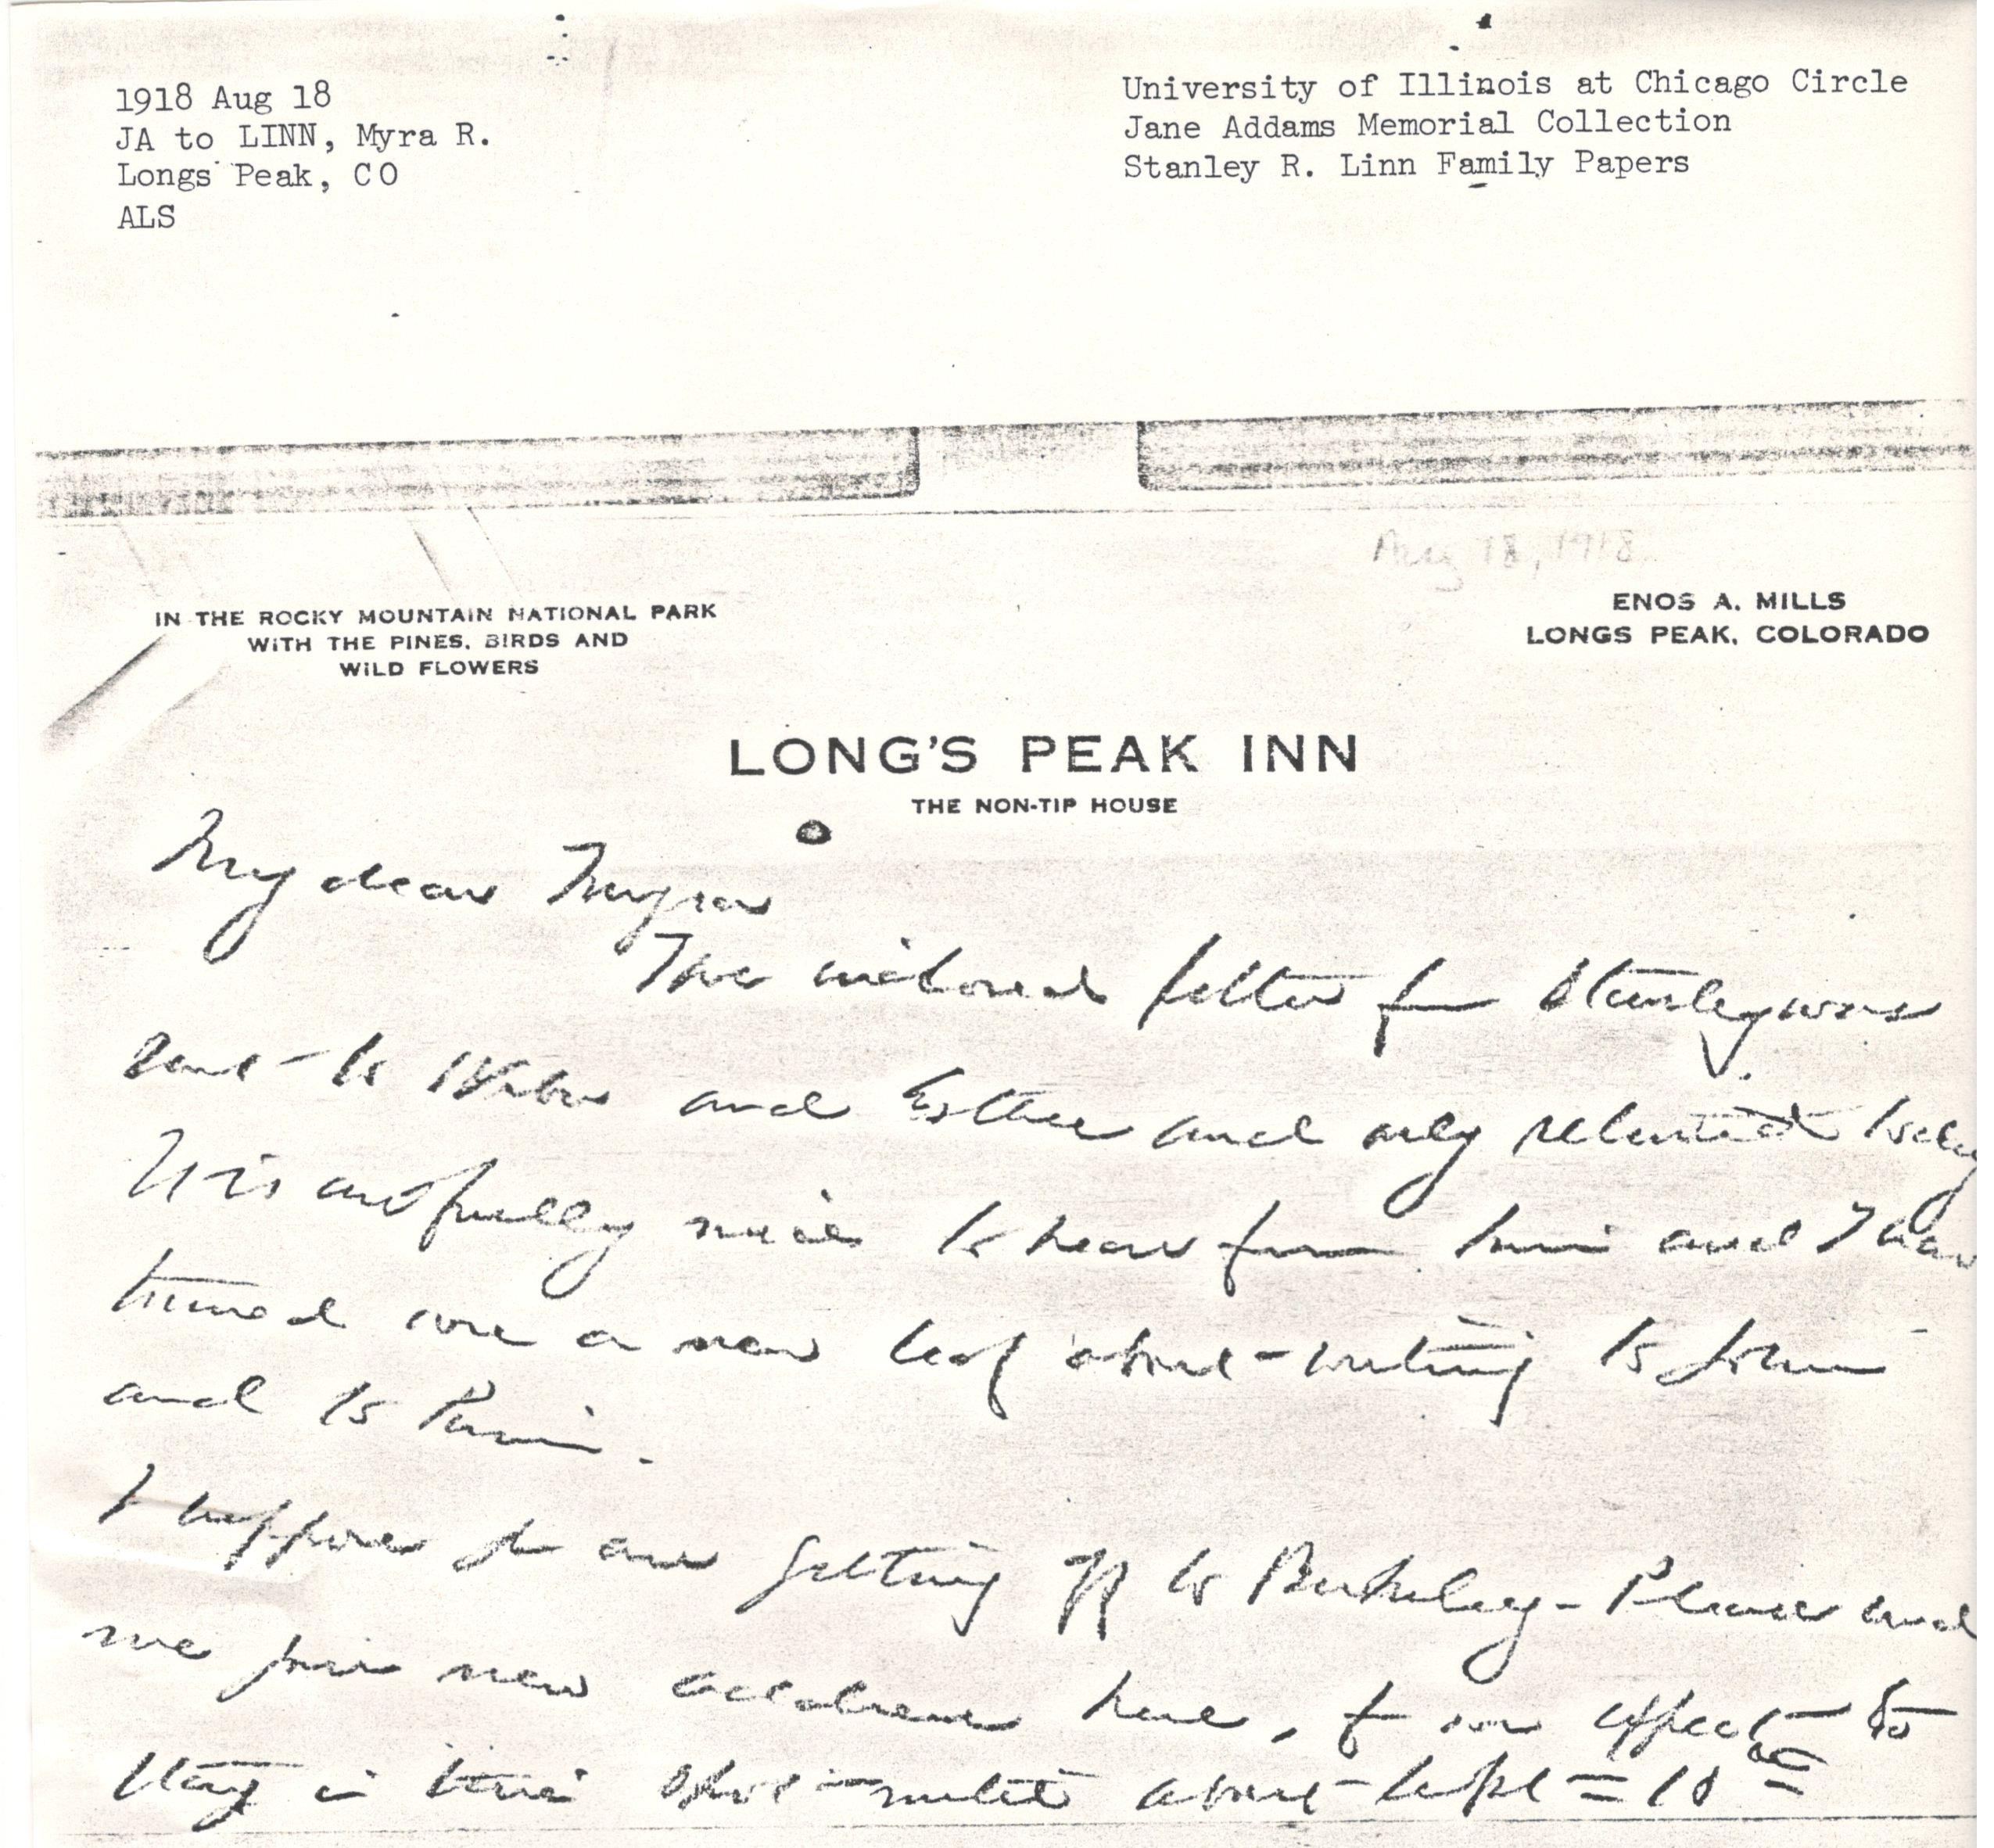 1918 Aug 18
JA to LINN, Myra R.
Longs Peak, CO
ALS
University of Illinois at Chicago Circle
Jane Addams Memorial Collection
Stanley R. Linn Family Papers
Aug 18, 1918
IN THE ROCKY MOUNTAIN NATIONAL PARK
WITH THE PINES, BIRDS AND
WILD FLOWERS
ENOS A. MILLS
LONGS PEAK, COLORADO
LONG'S PEAK INN
THE NON-TIP HOUSE
My dear Myra
The enclosed letter from Stanley was
sent to Weber and Esther and only returned today
It is awfully nice to hear from him and I have
turned over a new leaf about writing to John
and to him.
I suppose you are getting off to Berkeley - Please send
me your new address here, for we expect to
stay in this spot until about Sept 10